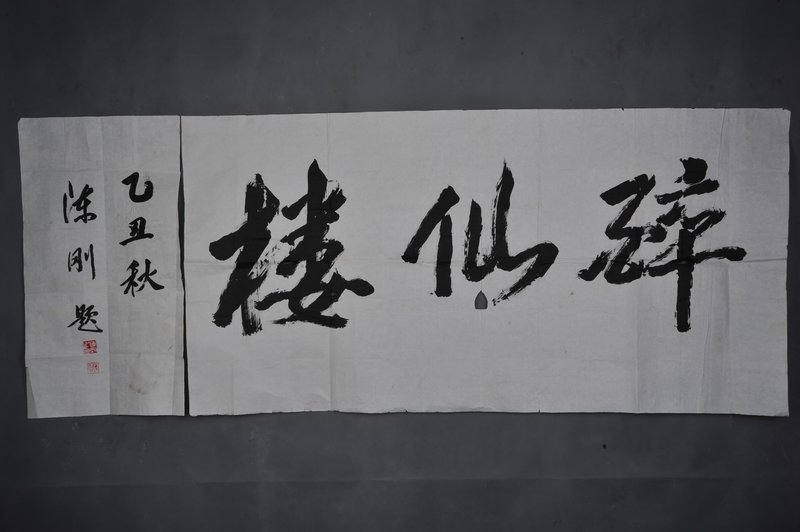 醉仙楼
乙丑秋
陈刚题